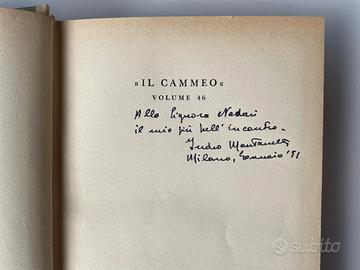 »IL CAMMEO«
VOLUME 46
Alla Signora Nadari
il mio più bell'incontro -
Indro Montanelli
Milano, Gennaio '51
subito